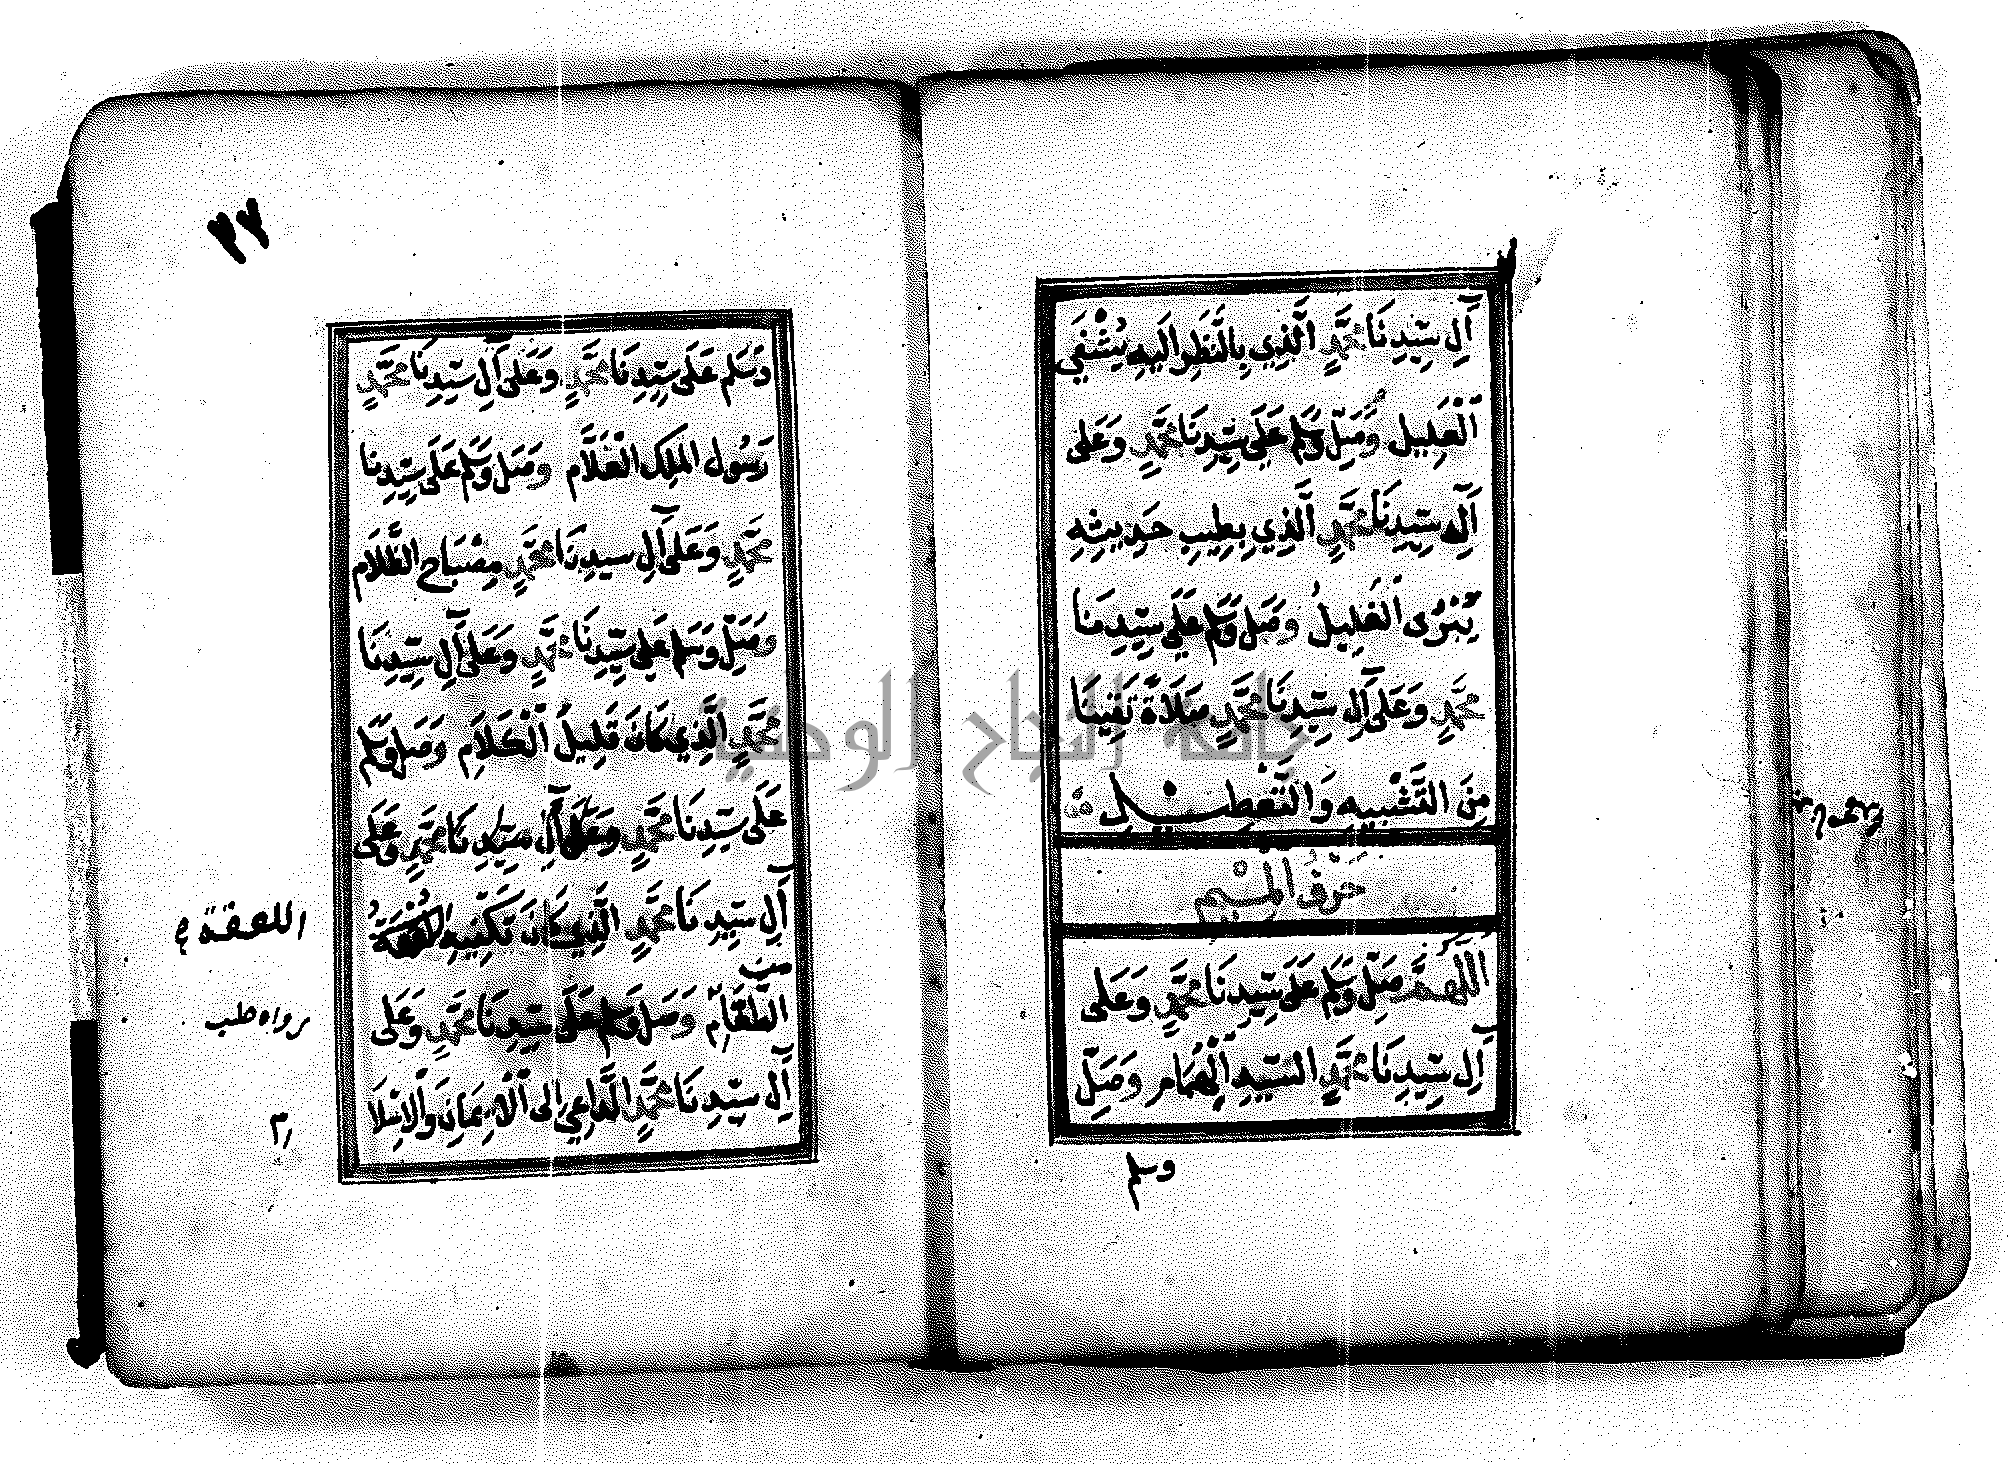 آلِ سَيِّدِنَا مُحَمَّدٍ الَّذِي بِالنَّظَرِ اِلَيْهِ يُشْفَي
الْعَلِيلُ وَصَلِّ وَسَلِّم عَلَى سَيِّدِنَا مُحَمَّدٍ وَعَلَى
آلِ سَيِّدِنَا مُحَمَّدٍ الَّذِي بِطِيبِ حَدِيثِهِ
يَبْرَى الْغَلِيلُ وَصَلِّ وَسَلِّم عَلَى سَيِّدِنَا
مُحَمَّدٍ وَعَلَى آلِ سَيِّدِنَا مُحَمَّدٍ صَلَاةً تَقِينَا
مِنَ التَّشْبِيهِ وَالتَّعْطِيلِ
حَرْفُ الْمِيْمِ
اَللَّهُمَّ صَلِّ وَسَلِّم عَلَى سَيِّدِنَا مُحَمَّدٍ وَعَلَى
آلِ سَيِّدِنَا مُحَمَّدٍ السَّيِّدِ الْهُمَامِ وَصَلِّ
وسلم
٢٧
وَسَلِّم عَلَى سَيِّدِنَا مُحَمَّدٍ وَعَلَى آلِ سَيِّدِنَا مُحَمَّدٍ
رَسُولِ الْمَلِكِ الْعَلَّامِ وَصَلِّ وَسَلِّم عَلَى سَيِّدِنَا
مُحَمَّدٍ وَعَلَى آلِ سيدِنَا مُحَمَّدٍ مِصْبَاحِ الظَّلَامِ
وَصَلِّ وَسَلِّم عَلَى سَيِّدِنَا مُحَمَّدٍ وَعَلَى آلِ سَيِّدِنَا
مُحَمَّدٍ الَّذِي كَانَ قَلِيلُ الْكَلَامِ وَصَلِّ وَسَلِّم
عَلَى سَيِّدِنَا مُحَمَّدٍ وَعَلَى آلِ سَيِّدِنَا مُحَمَّدٍ وَعَلَى
آلِ سَيِّدِنَا مُحَمَّدٍ الَّذِي كَانَ تَكْفِيهِ
اللعقة
من
الطَّعَامِ وَصَلِّ وَسَلِّم عَلَى سَيِّدِنَا مُحَمَّدٍ وَعَلَى
آلِ سَيِّدِنَا مُحَمَّدٍ الدَّاعِي اِلَى الْاِيمَانِ وَالْاِسْلَا
م
جامعة النجاح الوطنية